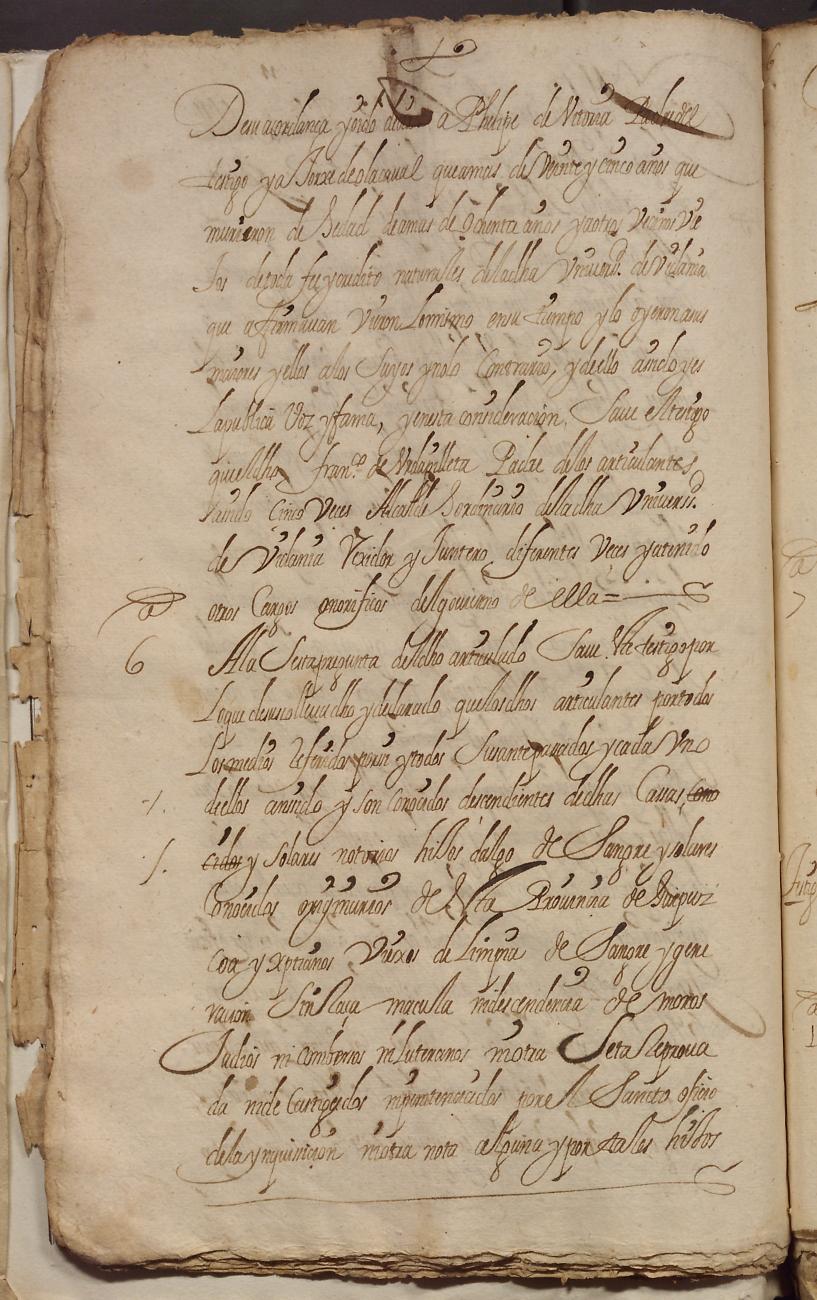 De mas oridança y oido decir a Phelipe de Vitoria Padre del
testigo y a Jorxe de olaçaual que a mas de Veinte y cinco años que
murieron de hedad de a mas de Ochenta años y a otros Vecinos Vie
Jos de toda fe y credito naturales de la dha Vniuersd. de Vidania
que afirmauan Vieron Lo mismo en su tiempo y lo oyeron a sus
maiores y ellos a los Suyos y no lo Contrario, y dello a auido y es
La publica Voz y fama, y en esta consideracion. Saue el testigo
que el dho franco. de Vrdapilleta Padre de los articulantes
a sido Cinco Veces Alcalde hordinario de la dha Vniuersd.
de Vidania Rexidor y Juntero diferentes Veces y a tenido
otros Cargos onorificos del gouierno de ella=
6 A la Sesta pregunta del dho articulado Saue este testigo por
Lo que de suso lleua dho y declarado que los dhos articulantes por todos
Los medios Referidos por si y todos Sus antepasados y cada Vno
dellos an sido y son Conocidos descendientes de dhas Cassas, cono
cidos y solares notorios hijos dalgo de Sangre y solares
Conocidos originarios de esta Prouinçia de Guipuz
coa y xptianos Viexos de Limpia de Sangre y gene
racion Sin Raça macula ni descendencia de moros
Judios ni Combersos ni Luteranos ni otra Seta Reproua
da ni de Castigados ni penitenciados por el Sancto oficio
de la ynquisiçion ni otra nota alguna y por tales hijos